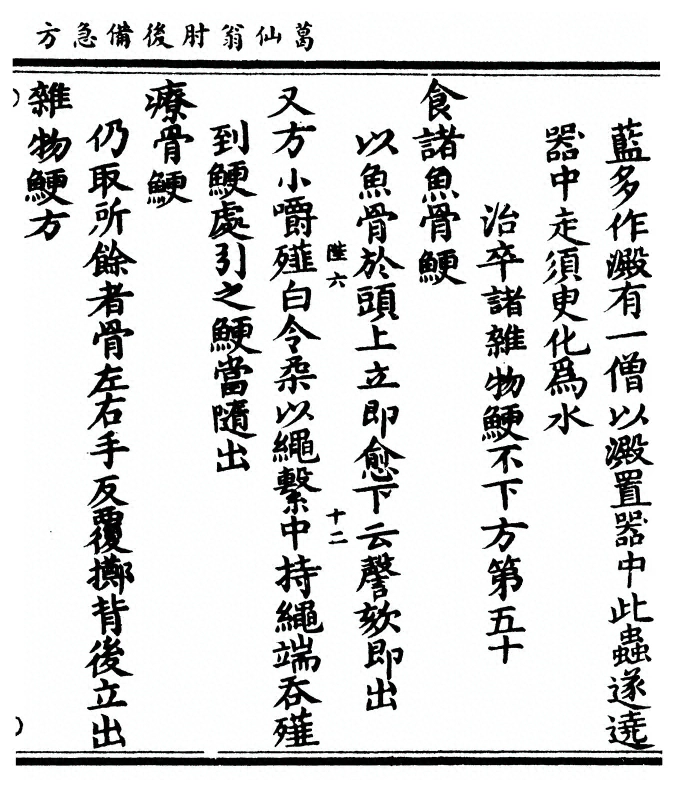 葛仙翁肘後備急方
藍多作澱有一僧以澱置器中此蟲遂遶
器中走須更化爲水
治卒諸雜物鯁不下方第五十
食諸魚骨鯁
以魚骨於頭上立即愈下云謦欬即出
陛六
十二
又方小嚼薤白令柔以繩繫中持繩端吞薤
到鯁處引之鯁當隨出
療骨鯁
仍取所餘者骨左右手反覆擲背後立出
雜物鯁方